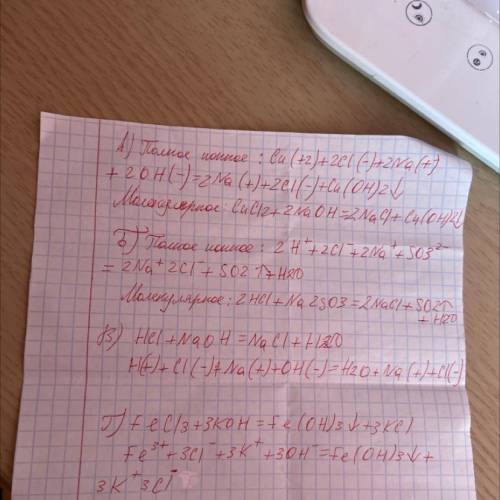 А) Полное ионное: Cu(+2)+2Cl(-)+2Na(+)
+ 2OH(-)=2Na(+)+2Cl(-)+Cu(OH)2↓
Молекулярное: CuCl2+2NaOH=2NaCl+Cu(OH)2↓
Б) Полное ионное: 2H⁺+2Cl⁻+2Na⁺+SO3²⁻
= 2Na⁺2Cl⁻+SO2↑+H2O
Молекулярное: 2HCl+Na2SO3=2NaCl+SO2↑
+H2O
В) HCl+NaOH=NaCl+H2O
H(+)+Cl(-)+Na(+)+OH(-)=H2O+Na(+)+Cl(-)
Г) FeCl3+3KOH=Fe(OH)3↓+3KCl
Fe³⁺+3Cl⁻+3K⁺+3OH⁻=Fe(OH)3↓+
3K⁺3Cl⁻